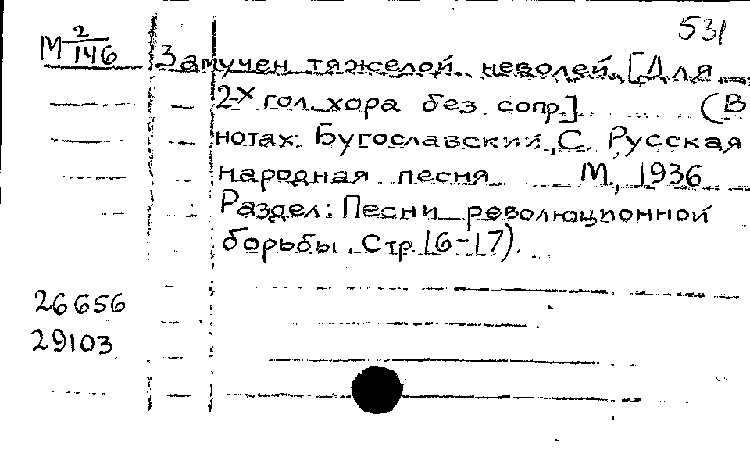 531
М 2/146
Замучен тяжелой неволей. [Для
2-х гол. хора без сопр.] (В
нотах: Бугославский, С. Русская
народная песня М., 1936
Раздел: Песни революционной
борьбы. Стр. 16-17).
26656
29103